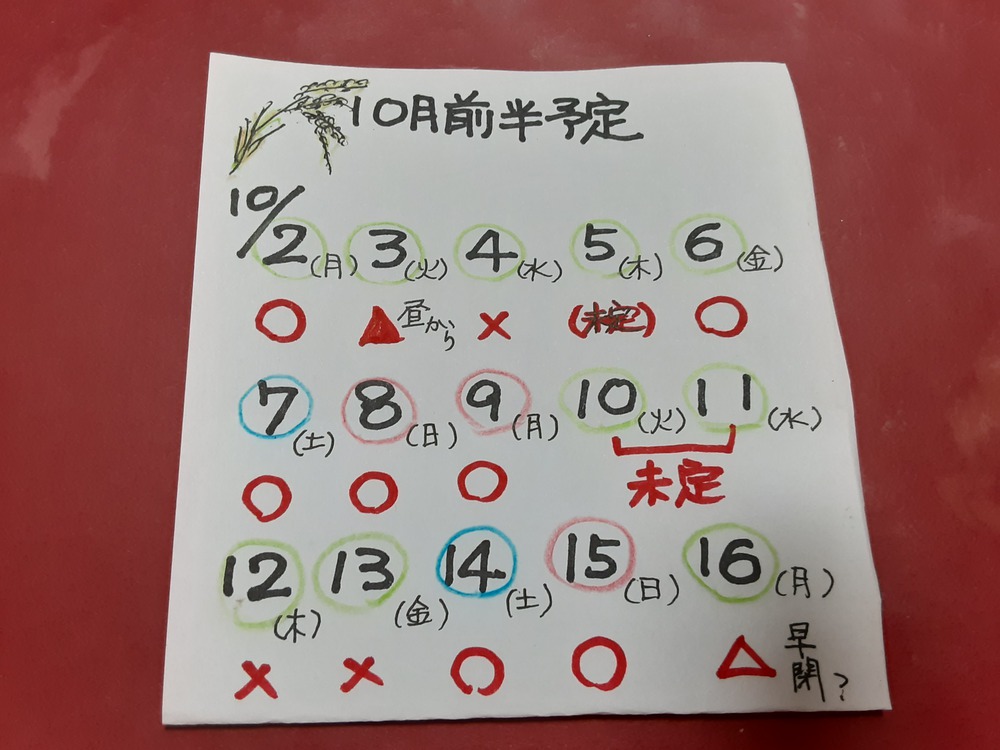 10月前半予定
10/2(月) 3(火) 4(水) 5(木) 6(金)
○ ▲昼から × (未定) ○
7(土) 8(日) 9(月) 10(火) 11(水)
○ ○ ○ 未定
12(木) 13(金) 14(土) 15(日) 16(月)
× × ○ ○ △早閉?